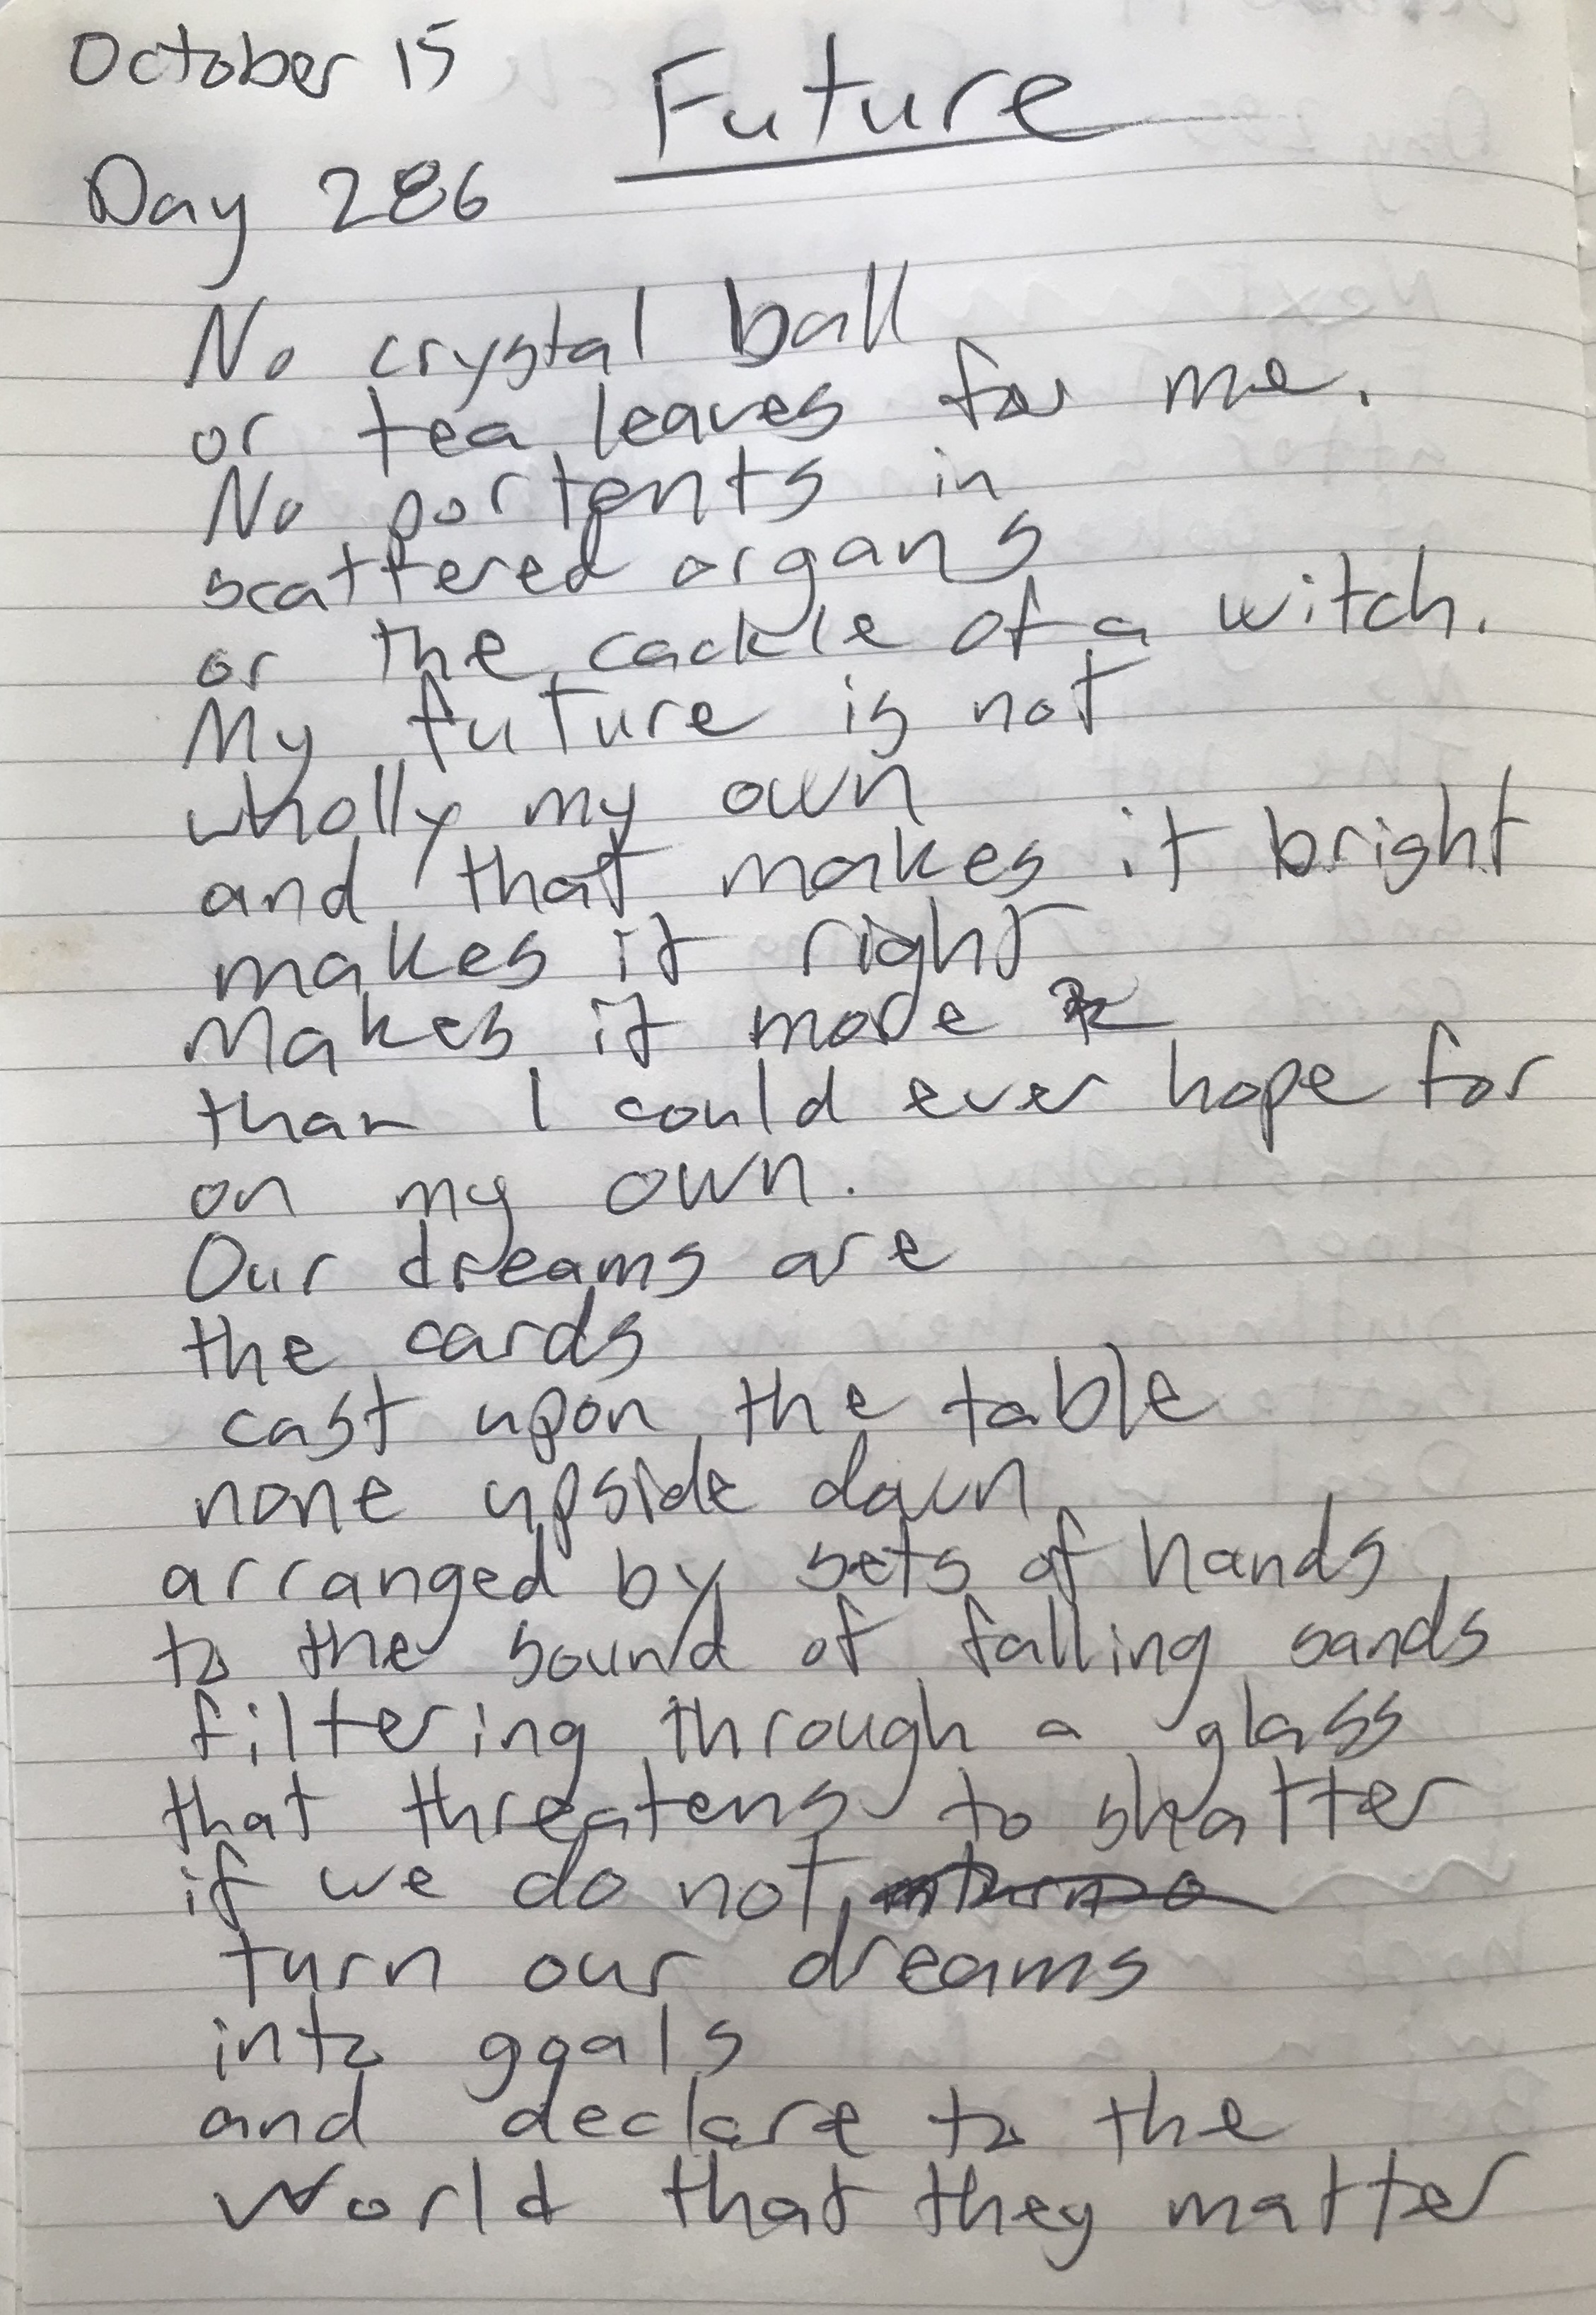 October 15
Future
Day 286
No crystal ball
or tea leaves for me.
No portents in
scattered organs
or the cackle of a witch.
My future is not
wholly my own
and that makes it bright
makes it right
Makes it more
than I could ever hope for
on my own.
Our dreams are
the cards
cast upon the table
none upside down
arranged by sets of hands
to the sound of falling sands
filtering through a glass
that threatens to shatter
if we do not
turn our dreams
into goals
and declare to the
World that they matter